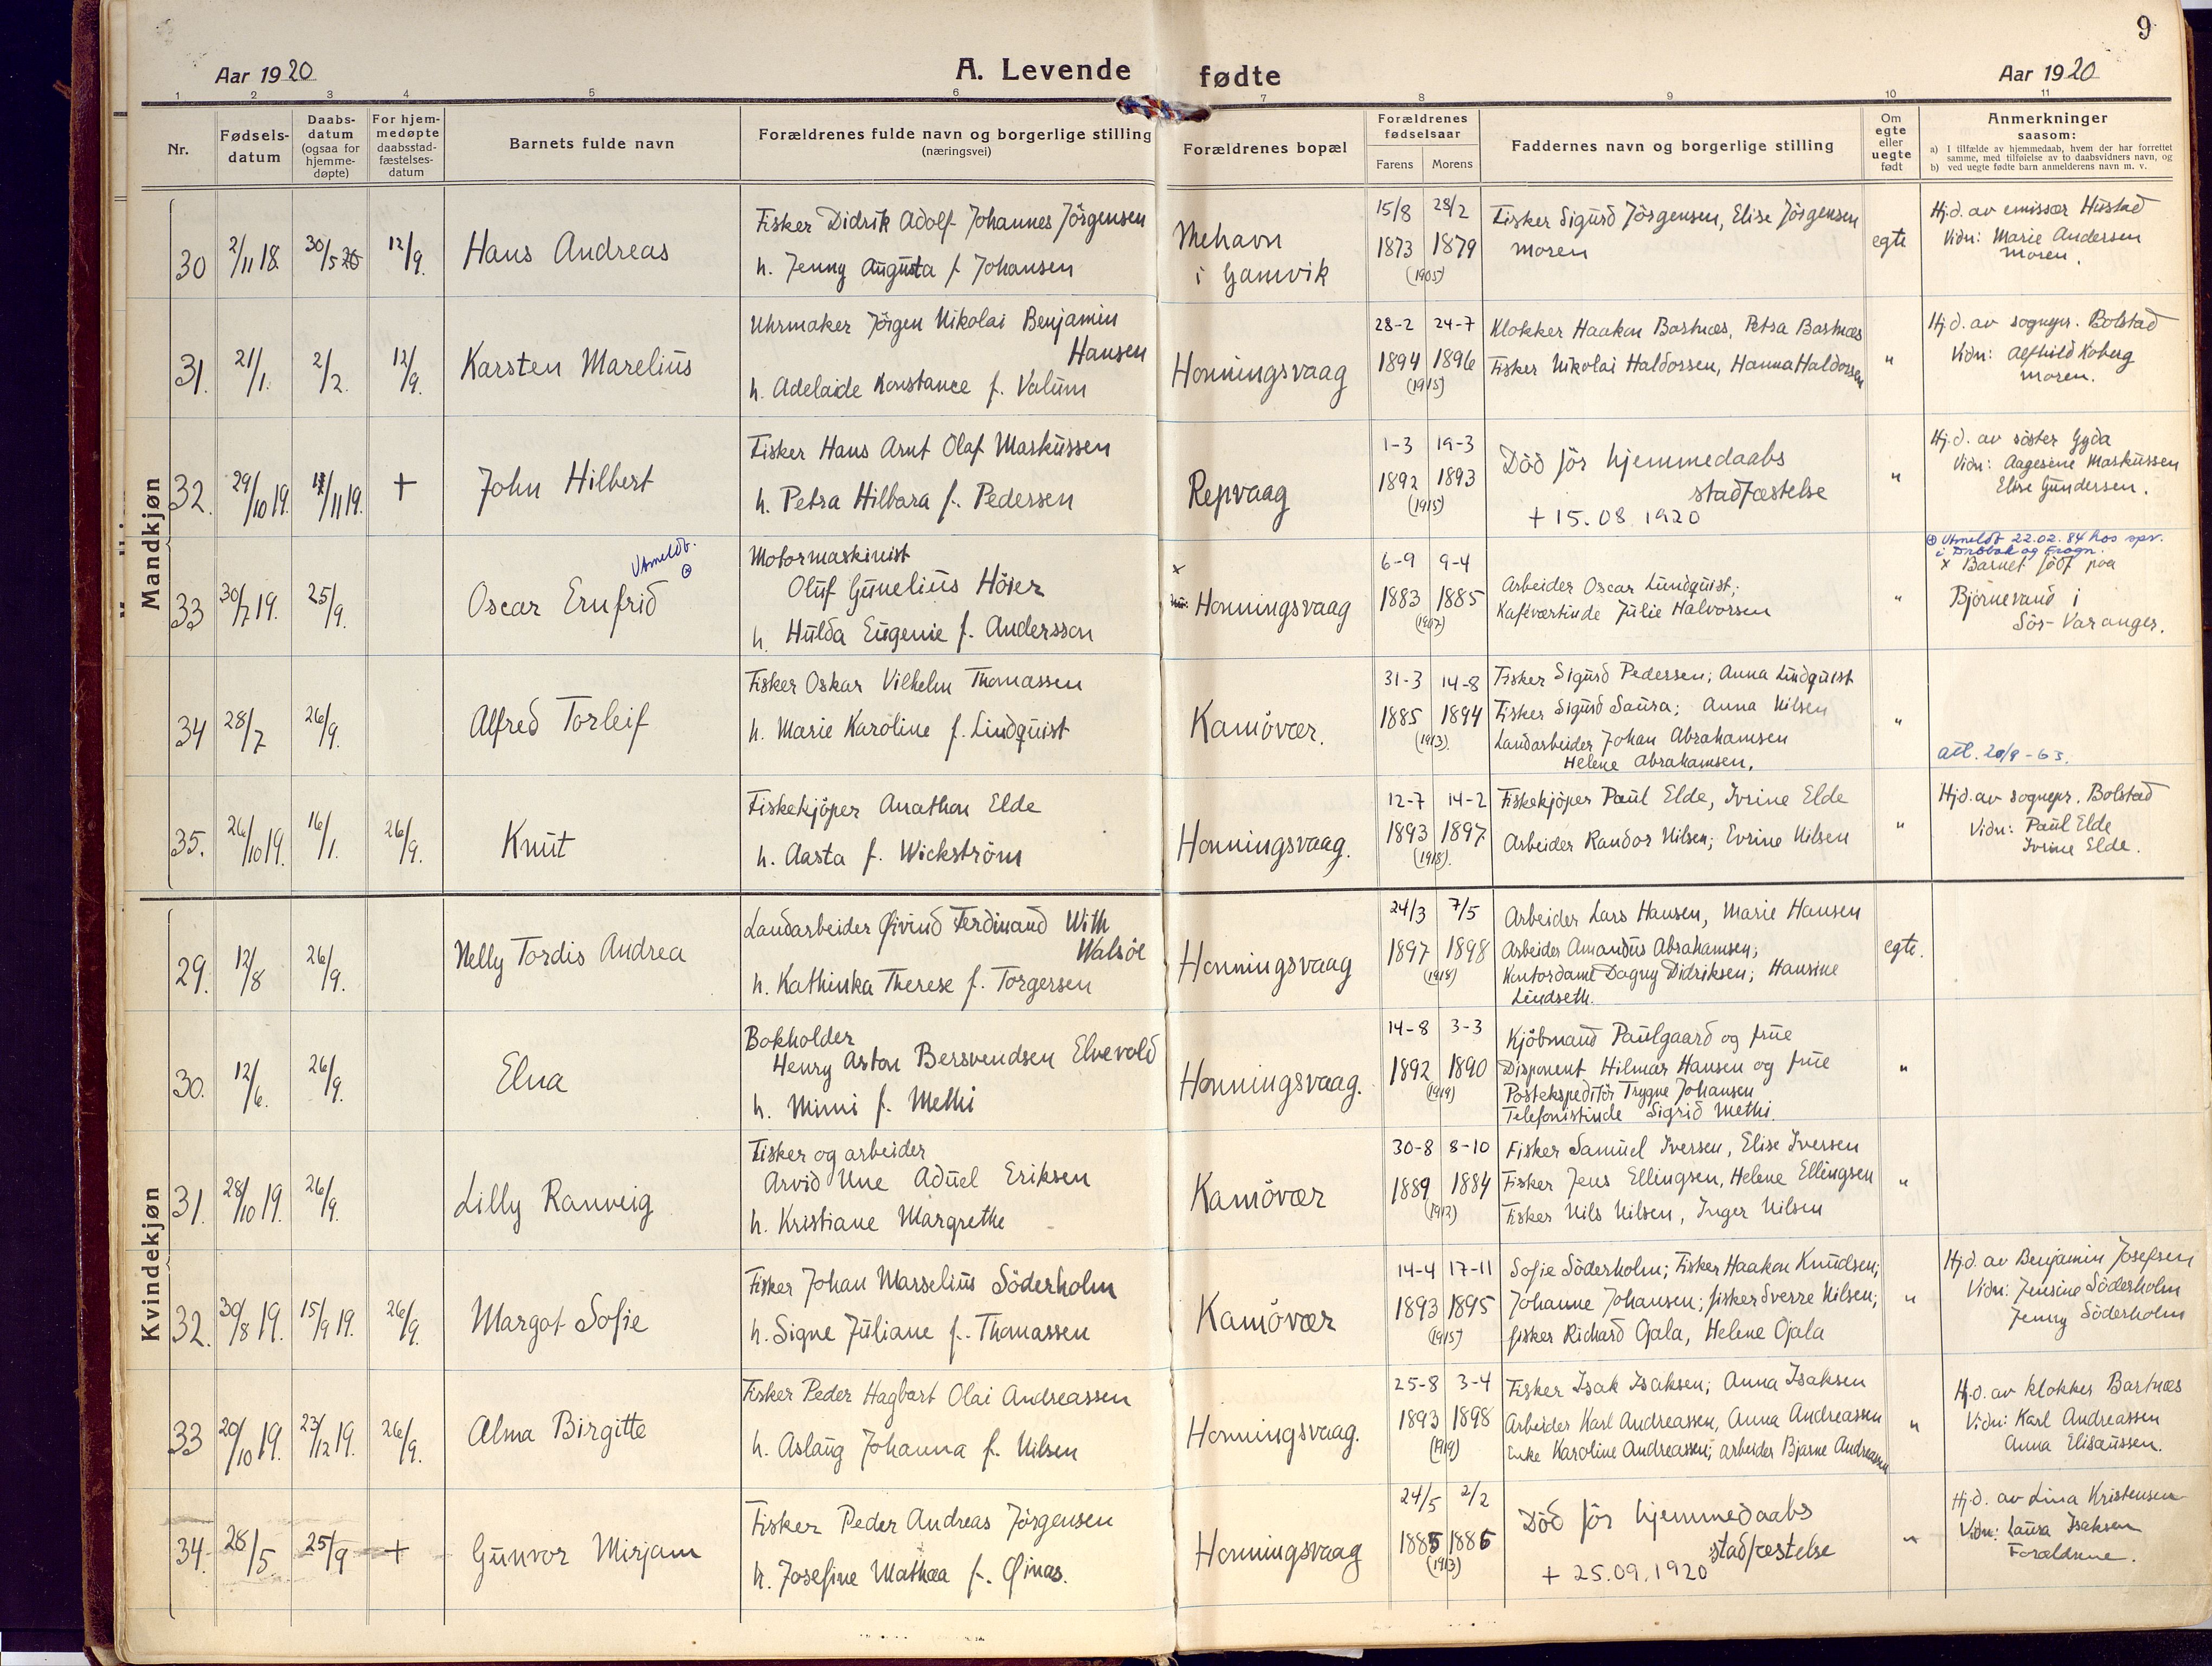 9
Aar 1920
A. Levende fødte
Aar 1920
1 2 3 4 5 6 7 8 9 10 11
Nr.
Fødsels-
datum
Daabs-
datum
(ogsaa for
hjemme-
døpte)
For hjem-
medøpte
daabsstad-
fæstelses-
datum
Barnets fulde navn
Forældrenes fulde navn og borgerlige stilling
(næringsvei)
Forældrenes bopæl
Forældrenes
fødselsaar
Farens Morens
Faddernes navn og borgerlige stilling
Om
egte
eller
uegte
født
Anmerkninger
saasom:
a) I tilfælde av hjemmedaab, hvem der har forrettet
samme, med tilføielse av to daabsvidners navn, og
b) ved uegte fødte barn anmelderens navn m. v.
Mandkjøn
30 2/11 18. 30/5 20 12/9.
Hans Andreas
Fisker Didrik Adolf Johannes Jörgensen
h. Jenny Augusta f. Johansen
Mehavn
i Gamvik
15/8 28/2
1873 1879
(1905)
Fisker Sigurd Jörgensen, Elise Jörgensen
moren
egte
Hj.d. av emissær Hustad
Vidn: Marie Andersen
moren.
31. 21/1. 2/2. 12/9.
Karsten Marelius
Uhrmaker Jörgen Nikolai Benjamin
Hansen
h. Adelaide Konstance f. Valum
Honningsvaag
28-2 24-7
1894 1896
(1915)
Klokker Haakon Bastnæs, Petra Bastnæs
Fisker Nikolai Haldorsen, Hanna Haldorsen
"
Hj.d. av sognepr. Bolstad
Vidn: Alfhild Koberg
moren.
32. 29/10 19. /11 19. +
John Hilbert
Fisker Hans Arnt Olaf Markussen
h. Petra Hilbara f. Pedersen
Repvaag
1-3 19-3
1892 1893
(1915)
Död för hjemmedaabs
stadfæstelse
+ 15.08.1920
"
Hj.d. av söster Gyda
Vidn: Aagesine Markussen
Elise Gundersen.
33 30/7 19. 25/9.
Oscar Ernfrid
Utmeldt.
Motormaskinist
Oluf Gunelius Höier
h. Hulda Eugenie f. Andersson
x
Honningsvaag
6-9 9-4
1883 1885
(1907)
Arbeider Oscar Lundquist;
Kafévertinde Julie Halvorsen
"
Utmeldt 22.02.84 hos spr.
i Drøbak og Frogn.
x Barnet född paa
Björnevand i
Sör-Varanger.
34 28/7 26/9.
Alfred Torleif
Fisker Oskar Vilhelm Thomassen
h. Marie Karoline f. Lindquist
Kamöver.
31-3 14-8
1885 1894
(1913).
Fisker Sigurd Pedersen; Anna Lindquist
Fisker Sigurd Saura; Anna Nilsen
Landarbeider Johan Abrahamsen
Helene Abrahamsen.
"
att. 20/9-63.
35. 26/10 19. 16/1. 26/9.
Knut
Fiskekjöper Anathon Elde
h. Aasta f. Wickström
Honningsvaag.
12-7 14-2
1893 1897
(1918).
Fiskekjöper Paul Elde, Ivrine Elde
Arbeider Randor Nilsen; Evrine Nilsen
"
Hj.d. av sognepr. Bolstad
Vidn: Paul Elde
Ivrine Elde.
Kvindekjøn
29. 12/8 26/9.
Nelly Tordis Andrea
Landarbeider Øivind Ferdinand With
Walsöe
h. Kathinka Therese f. Torgersen
Honningsvaag
24/3 7/5
1897 1898
(1918)
Arbeider Lars Hansen, Marie Hansen
Arbeider Amandus Abrahamsen;
Kontordame Dagny Didriksen; Hansine
Lindseth.
egte.
30. 12/6. 26/9.
Elna
Bokholder
Henry Aston Bersvendsen Elvevold
h. Mimi f. Methi
Honningsvaag.
14-8 3-3
1892 1890
(1919)
Kjöbmand Paulgaard og frue
Disponent Hilmar Hansen og frue
Postekspeditör Trygve Johansen
Telefonistinde Sigrid Methi.
"
31. 28/10 19. 26/9.
Lilly Ranveig
Fisker og arbeider
Arvid Une Aduel Eriksen
h. Kristiane Margrethe
Kamöver
30-8 8-10
1889 1884
(1912)
Fisker Samuel Iversen, Elise Iversen
Fisker Jens Ellingsen, Helene Ellingsen
Fisker Nils Nilsen, Inger Nilsen
"
32. 30/8 19. 15/9 19. 26/9.
Margot Sofie
Fisker Johan Marselius Söderholm
h. Signe Juliane f. Thomassen
Kamöver
14-4 17-11
1893 1895
(1915)
Sofie Söderholm; Fisker Haakon Knudsen;
Johanne Johansen; fisker Sverre Nilsen;
fisker Richard Ojala, Helene Ojala
"
Hj.d. av Benjamin Josefsen
Vidn: Jensine Söderholm
Jenny Söderholm
33 20/10 19. 23/12 19. 26/9.
Alma Birgitte
Fisker Peder Hagbart Olai Andreassen
h. Aslaug Johanna f. Nilsen
Honningsvaag.
25-8 3-4
1893 1898
(1919)
Fisker Isak Isaksen; Anna Isaksen
Arbeider Karl Andreassen, Anna Andreassen
Enke Karoline Andreassen; arbeider Bjarne Andreassen
"
Hj.d. av klokker Bastnæs
Vidn: Karl Andreassen
Anna Elisaussen.
34. 28/5 25/9 +
Gunvor Mirjam
Fisker Peder Andreas Jörgensen
h. Josefine Mathea f. Øinas.
Honningsvaag
24/5 2/2
1885 1886
(1913)
Död för hjemmedaabs
stadfæstelse
+ 25.09.1920
"
Hj.d. av Lina Kristensen
Vidn: Laura Isaksen
Forældrene.